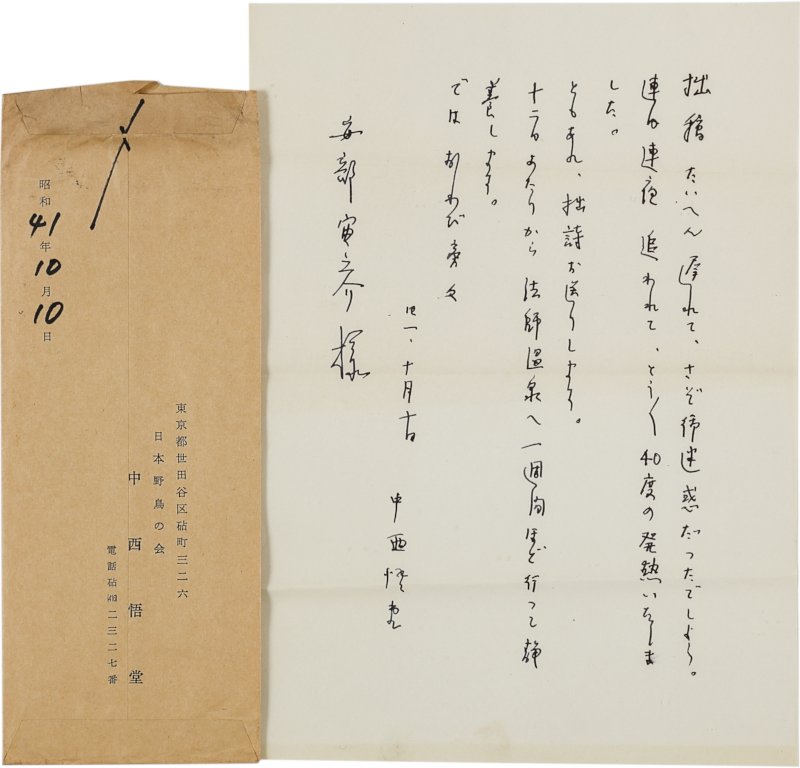 拙稿たいへん遅れて、さぞ御迷惑だったでしょう。
連日連夜追われて、とう〱40度の発熱いたしま
した。
ともあれ、拙詩お送りします。
十二日あたりから法師温泉へ一週間ほど行って静
養します。
ではおわび旁々
四一、十月十日
中西悟堂
安部寅之介様
昭和41年10月10日
東京都世田谷区砧町三二六
日本野鳥の会
中西悟堂
電話砧 二三二七番